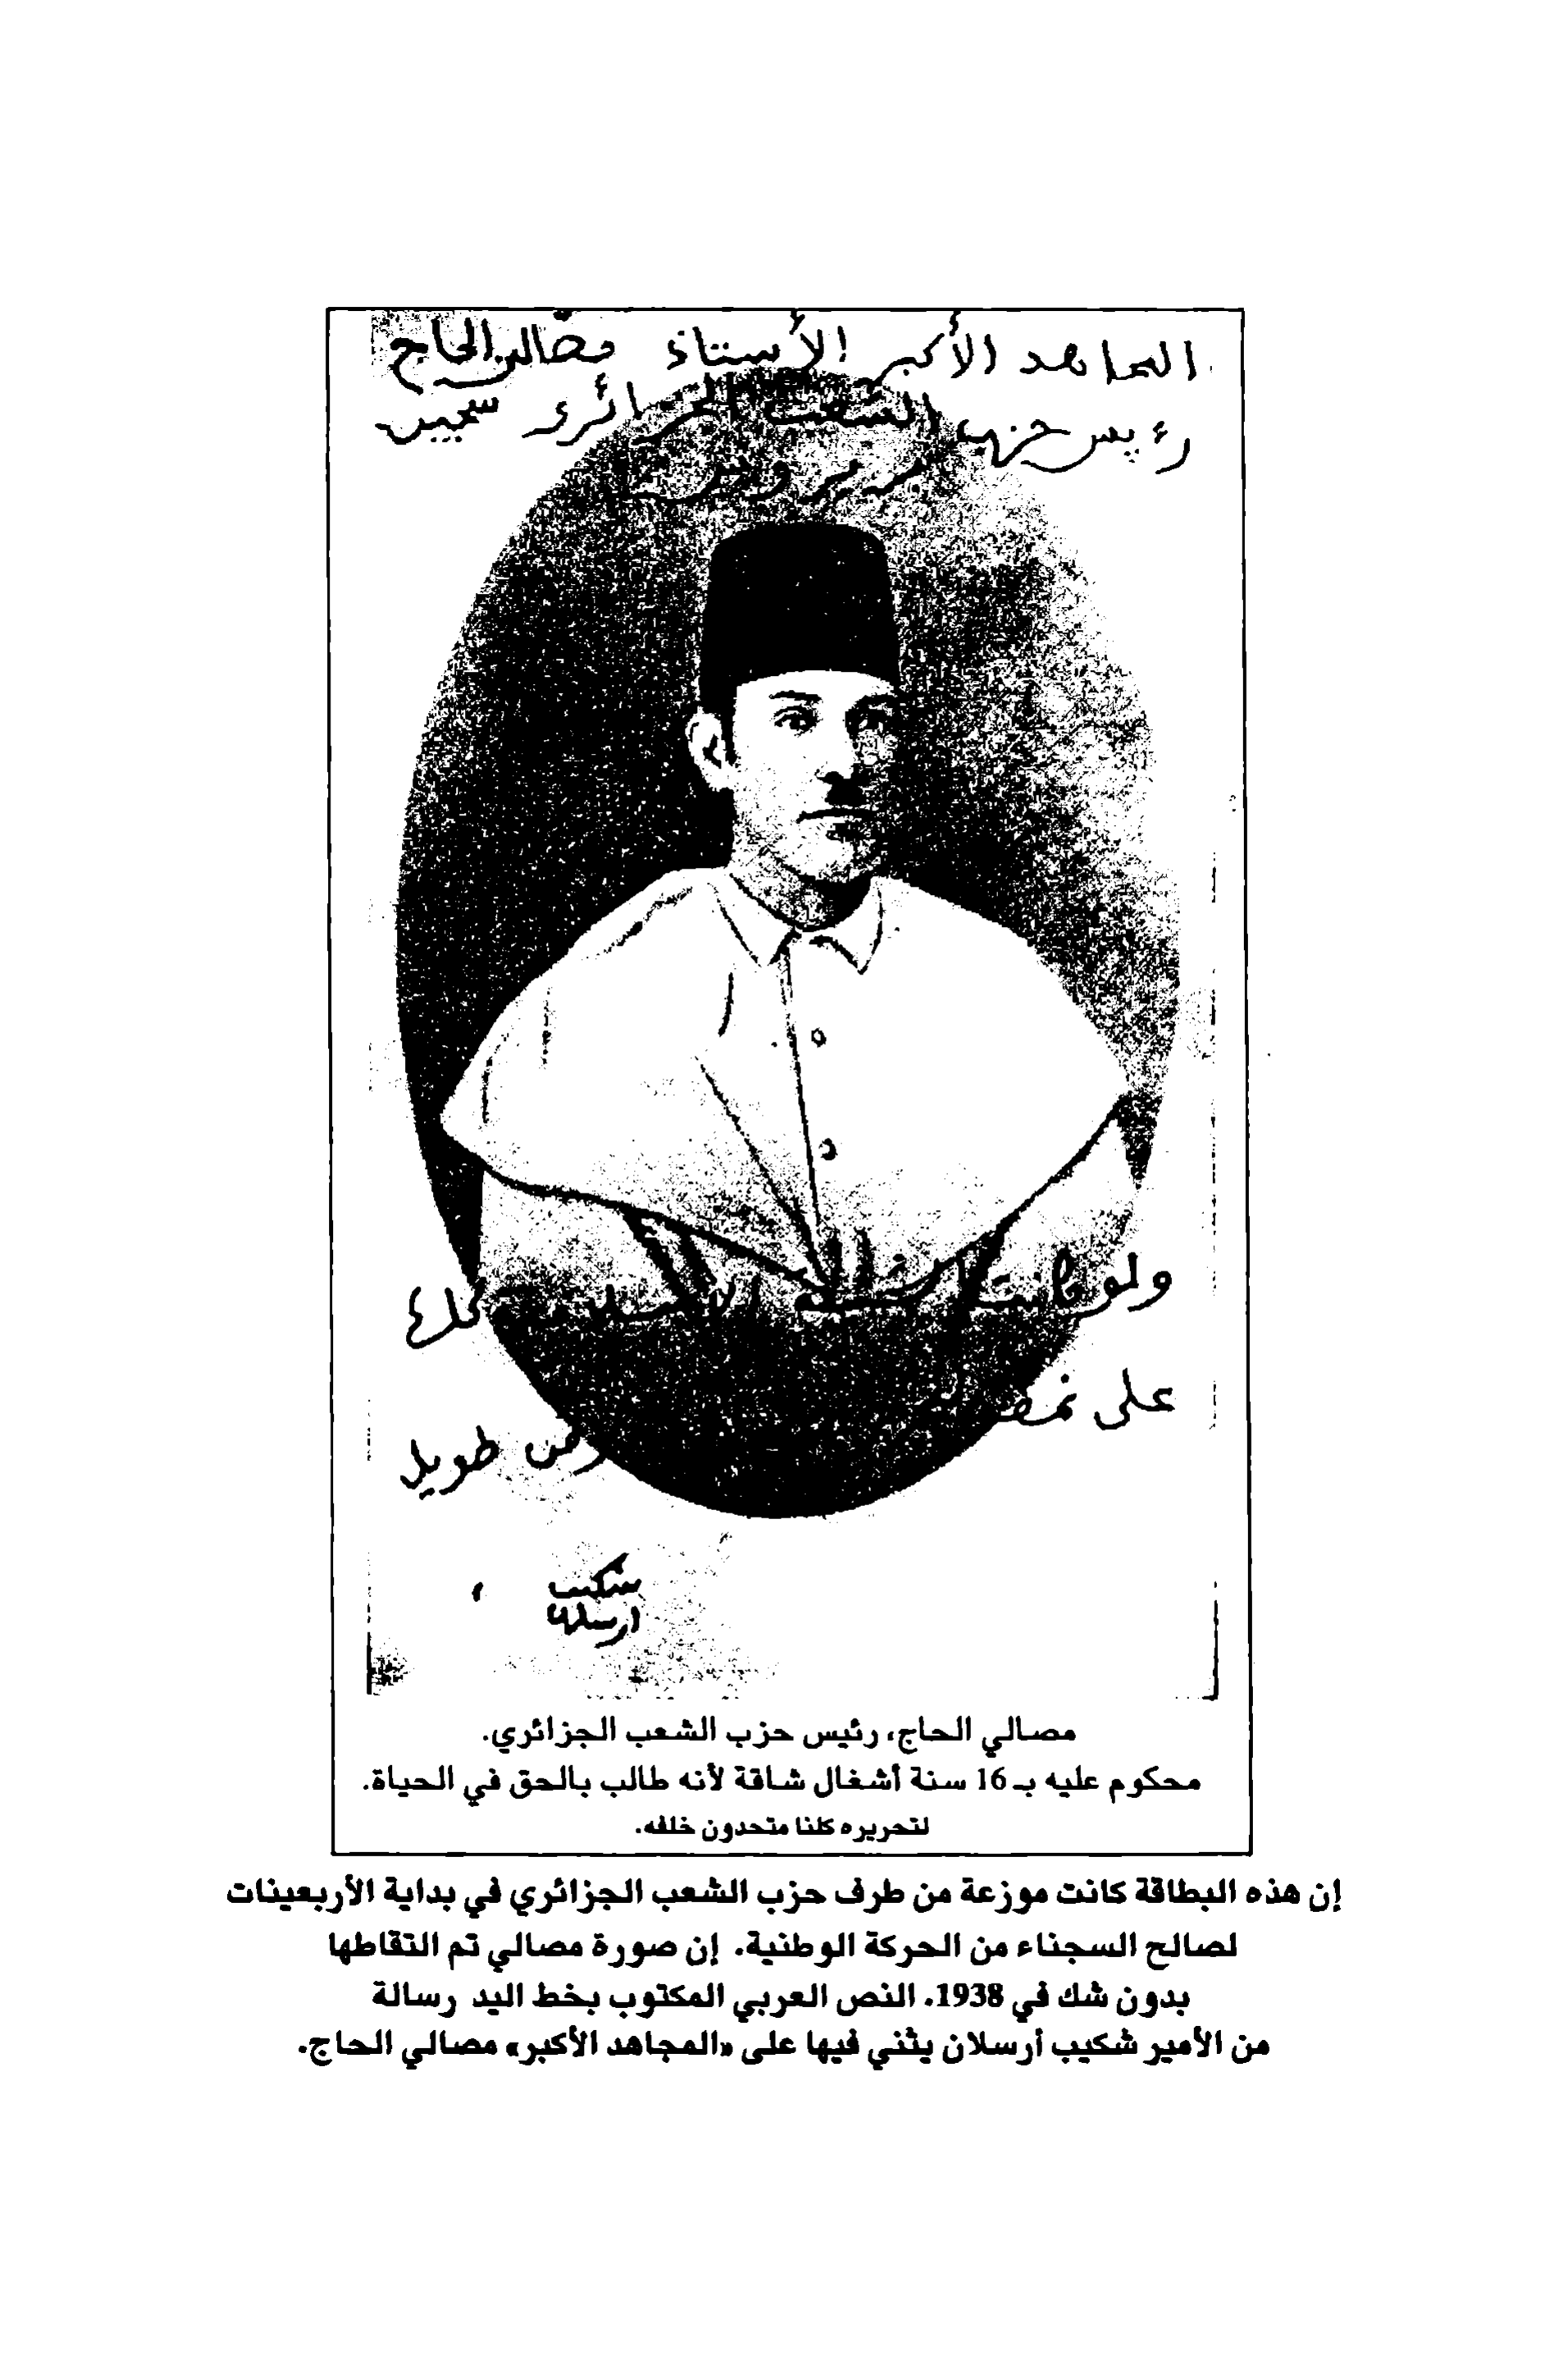 المجاهد الأكبر الأستاذ مصالي الحاج
رئيس حزب الشعب الجزائري سجين
ولو كانت الأمة كلها
على نمط زمن طويل
شكيب
ارسلان
مصالي الحاج، رئيس حزب الشعب الجزائري.
محكوم عليه بـ 16 سنة أشغال شاقة لأنه طالب بالحق في الحياة.
لتحريره كلنا متحدون خلفه.
إن هذه البطاقة كانت موزعة من طرف حزب الشعب الجزائري في بداية الأربعينات
لصالح السجناء من الحركة الوطنية. إن صورة مصالي تم التقاطها
بدون شك في 1938. النص العربي المكتوب بخط اليد رسالة
من الأمير شكيب أرسلان يثني فيها على «المجاهد الأكبر» مصالي الحاج.